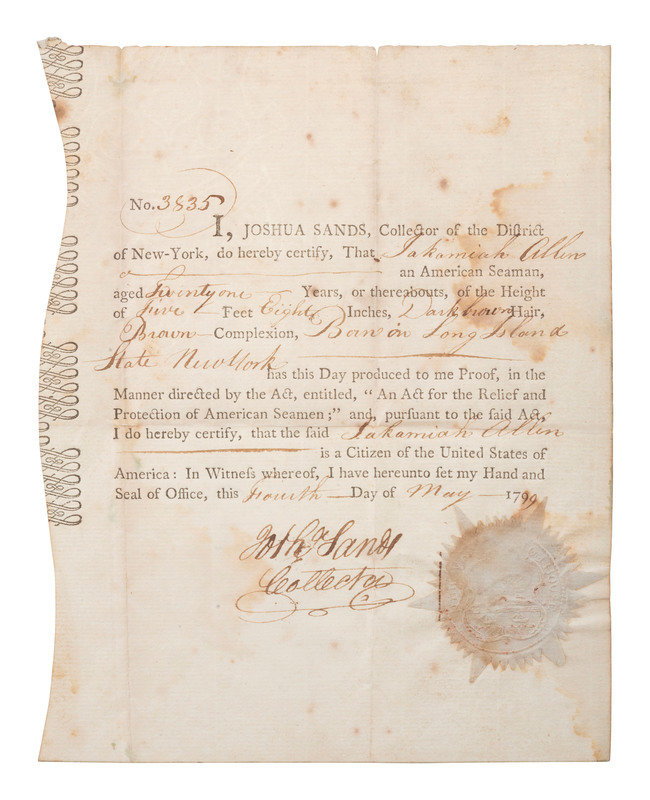 No. 3835
I, JOSHUA SANDS, Collector of the District
of New-York, do hereby certify, That Jakamiah Allen
an American Seaman,
aged Twenty one Years, or thereabouts, of the Height
of Five Feet Eight Inches, Dark brown Hair,
Brown Complexion, Born in Long Island
State New York has this Day produced to me Proof, in the
Manner directed by the Act, entitled, “An Act for the Relief and
Protection of American Seamen;” and, pursuant to the said Act,
I do hereby certify, that the said Jakamiah Allen
is a Citizen of the United States of
America: In Witness whereof, I have hereunto set my Hand and
Seal of Office, this Fourth Day of May 1799
Josha Sands
Collector